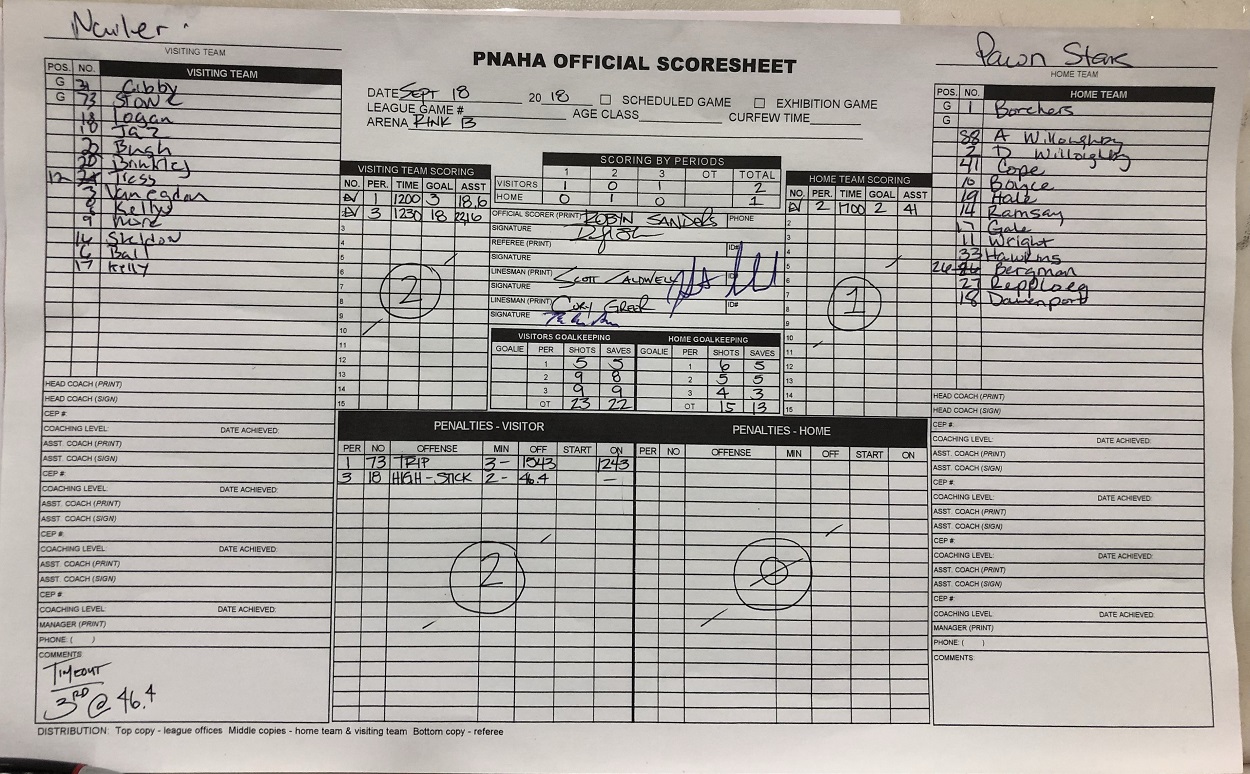 Nailer
VISITING TEAM
PNAHA OFFICIAL SCORESHEET
Pawn Stars
HOME TEAM
DATE SEPT 18 20 18 ☐ SCHEDULED GAME ☐ EXHIBITION GAME
LEAGUE GAME # AGE CLASS CURFEW TIME
ARENA RINK B
POS. NO. VISITING TEAM
G Gibby
G 73 STONE
18 Logan
10 Jaz
20 Bush
Brinkley
12 Tress
3 Vanregdon
8 Kelly
9 More
16 Skeldon
6 Ball
17 Kelly
HEAD COACH (PRINT)
HEAD COACH (SIGN)
CEP #:
COACHING LEVEL: DATE ACHIEVED:
ASST. COACH (PRINT)
ASST. COACH (SIGN)
CEP #:
COACHING LEVEL: DATE ACHIEVED:
ASST. COACH (PRINT)
ASST. COACH (SIGN)
CEP #:
COACHING LEVEL: DATE ACHIEVED:
ASST. COACH (PRINT)
ASST. COACH (SIGN)
CEP #:
COACHING LEVEL: DATE ACHIEVED:
MANAGER (PRINT)
PHONE: ( )
COMMENTS
TIMEOUT
3RD @ 46.4
VISITING TEAM SCORING
NO. PER. TIME GOAL ASST
EV 1 1200 3 18,6
EV 3 1230 18 22,16
3
4
5
6
7
8
9
10
11
12
13
14
15
2
SCORING BY PERIODS
1 2 3 OT TOTAL
VISITORS 1 0 1 2
HOME 0 1 0 1
OFFICIAL SCORER (PRINT) ROBYN SANDERS PHONE
SIGNATURE
REFEREE (PRINT) ID#
SIGNATURE
LINESMAN (PRINT) SCOTT CALDWELL ID#
SIGNATURE
LINESMAN (PRINT) CORY GREER ID#
SIGNATURE
VISITORS GOALKEEPING HOME GOALKEEPING
GOALIE PER SHOTS SAVES GOALIE PER SHOTS SAVES
1 5 5 1 6 5
2 9 8 2 5 5
3 9 9 3 4 3
OT 23 22 OT 15 13
HOME TEAM SCORING
NO. PER. TIME GOAL ASST
EV 2 1700 2 41
2
3
4
5
6
7
8
9
10
11
12
13
14
15
1
POS. NO. HOME TEAM
G 1 Borchers
G
88 A Willoughby
2 D Willoughby
41 Cope
10 Boyce
19 Hale
14 Ramsay
17 Gale
11 Wright
33 Hawkins
26 Bergman
27 Repploeg
18 Davenport
HEAD COACH (PRINT)
HEAD COACH (SIGN)
CEP #:
COACHING LEVEL: DATE ACHIEVED:
ASST. COACH (PRINT)
ASST. COACH (SIGN)
CEP #:
COACHING LEVEL: DATE ACHIEVED:
ASST. COACH (PRINT)
ASST. COACH (SIGN)
CEP #:
COACHING LEVEL: DATE ACHIEVED:
ASST. COACH (PRINT)
ASST. COACH (SIGN)
CEP #:
COACHING LEVEL: DATE ACHIEVED:
MANAGER (PRINT)
PHONE: ( )
COMMENTS:
PENALTIES - VISITOR PENALTIES - HOME
PER NO OFFENSE MIN OFF START ON PER NO OFFENSE MIN OFF START ON
1 73 TRIP 3- 1543 1243
3 18 HIGH-STICK 2- 46.4 —
2
0
DISTRIBUTION: Top copy - league offices Middle copies - home team & visiting team Bottom copy - referee